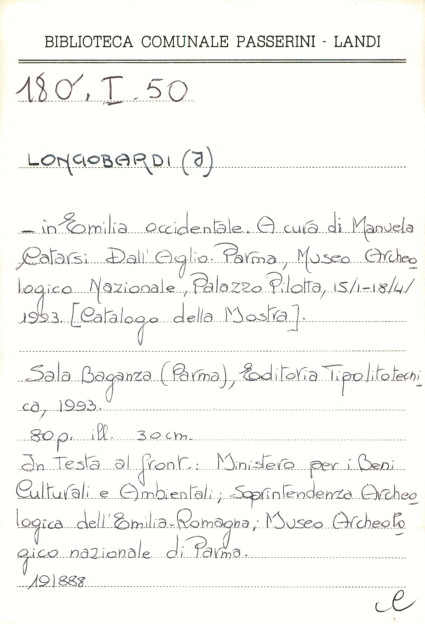 BIBLIOTECA COMUNALE PASSERINI - LANDI
180'. I. 50
LONGOBARDI (I)
- in Emilia occidentale. A cura di Manuela
Catarsi Dall'Aglio. Parma, Museo Archeo
logico Nazionale, Palazzo Pilotta, 15/1-18/4/
1993. [Catalogo della Mostra].
Sala Baganza (Parma), Editoria Tipolitotecni
ca, 1993.
80 p. ill. 30 cm.
In testa al front.: Ministero per i Beni
Culturali e Ambientali; Soprintendenza Archeo
logica dell'Emilia-Romagna; Museo Archeolo
gico nazionale di Parma.
191888